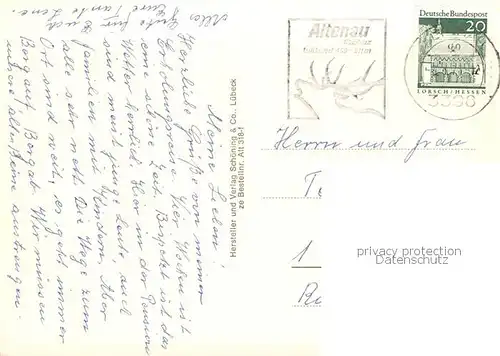 Alles Gute für Euch
Eure Tante Lene.
Meine Lieben!
Herzliche Grüße von unserer
Erholungsreise. Hier Wochen ist
eine schöne Zeit. Bis jetzt ist das
Wetter herrlich. Hier in der Pension
sind meist junge Leute auch
Familien mit Kindern. Aber
alle sehr nett. Die Wege zum
Ort sind weit, es geht immer
Bergauf, Bergab. Wir müssen
unsere alten Beine anstrengen.
Hersteller und Verlag Schöning & Co., Lübeck
ze Bestellnr. Alt 318-1
Altenau
Deutsche Bundespost
20
LORSCH/HESSEN
Herrn und Frau
1
privacy protection
Datenschutz